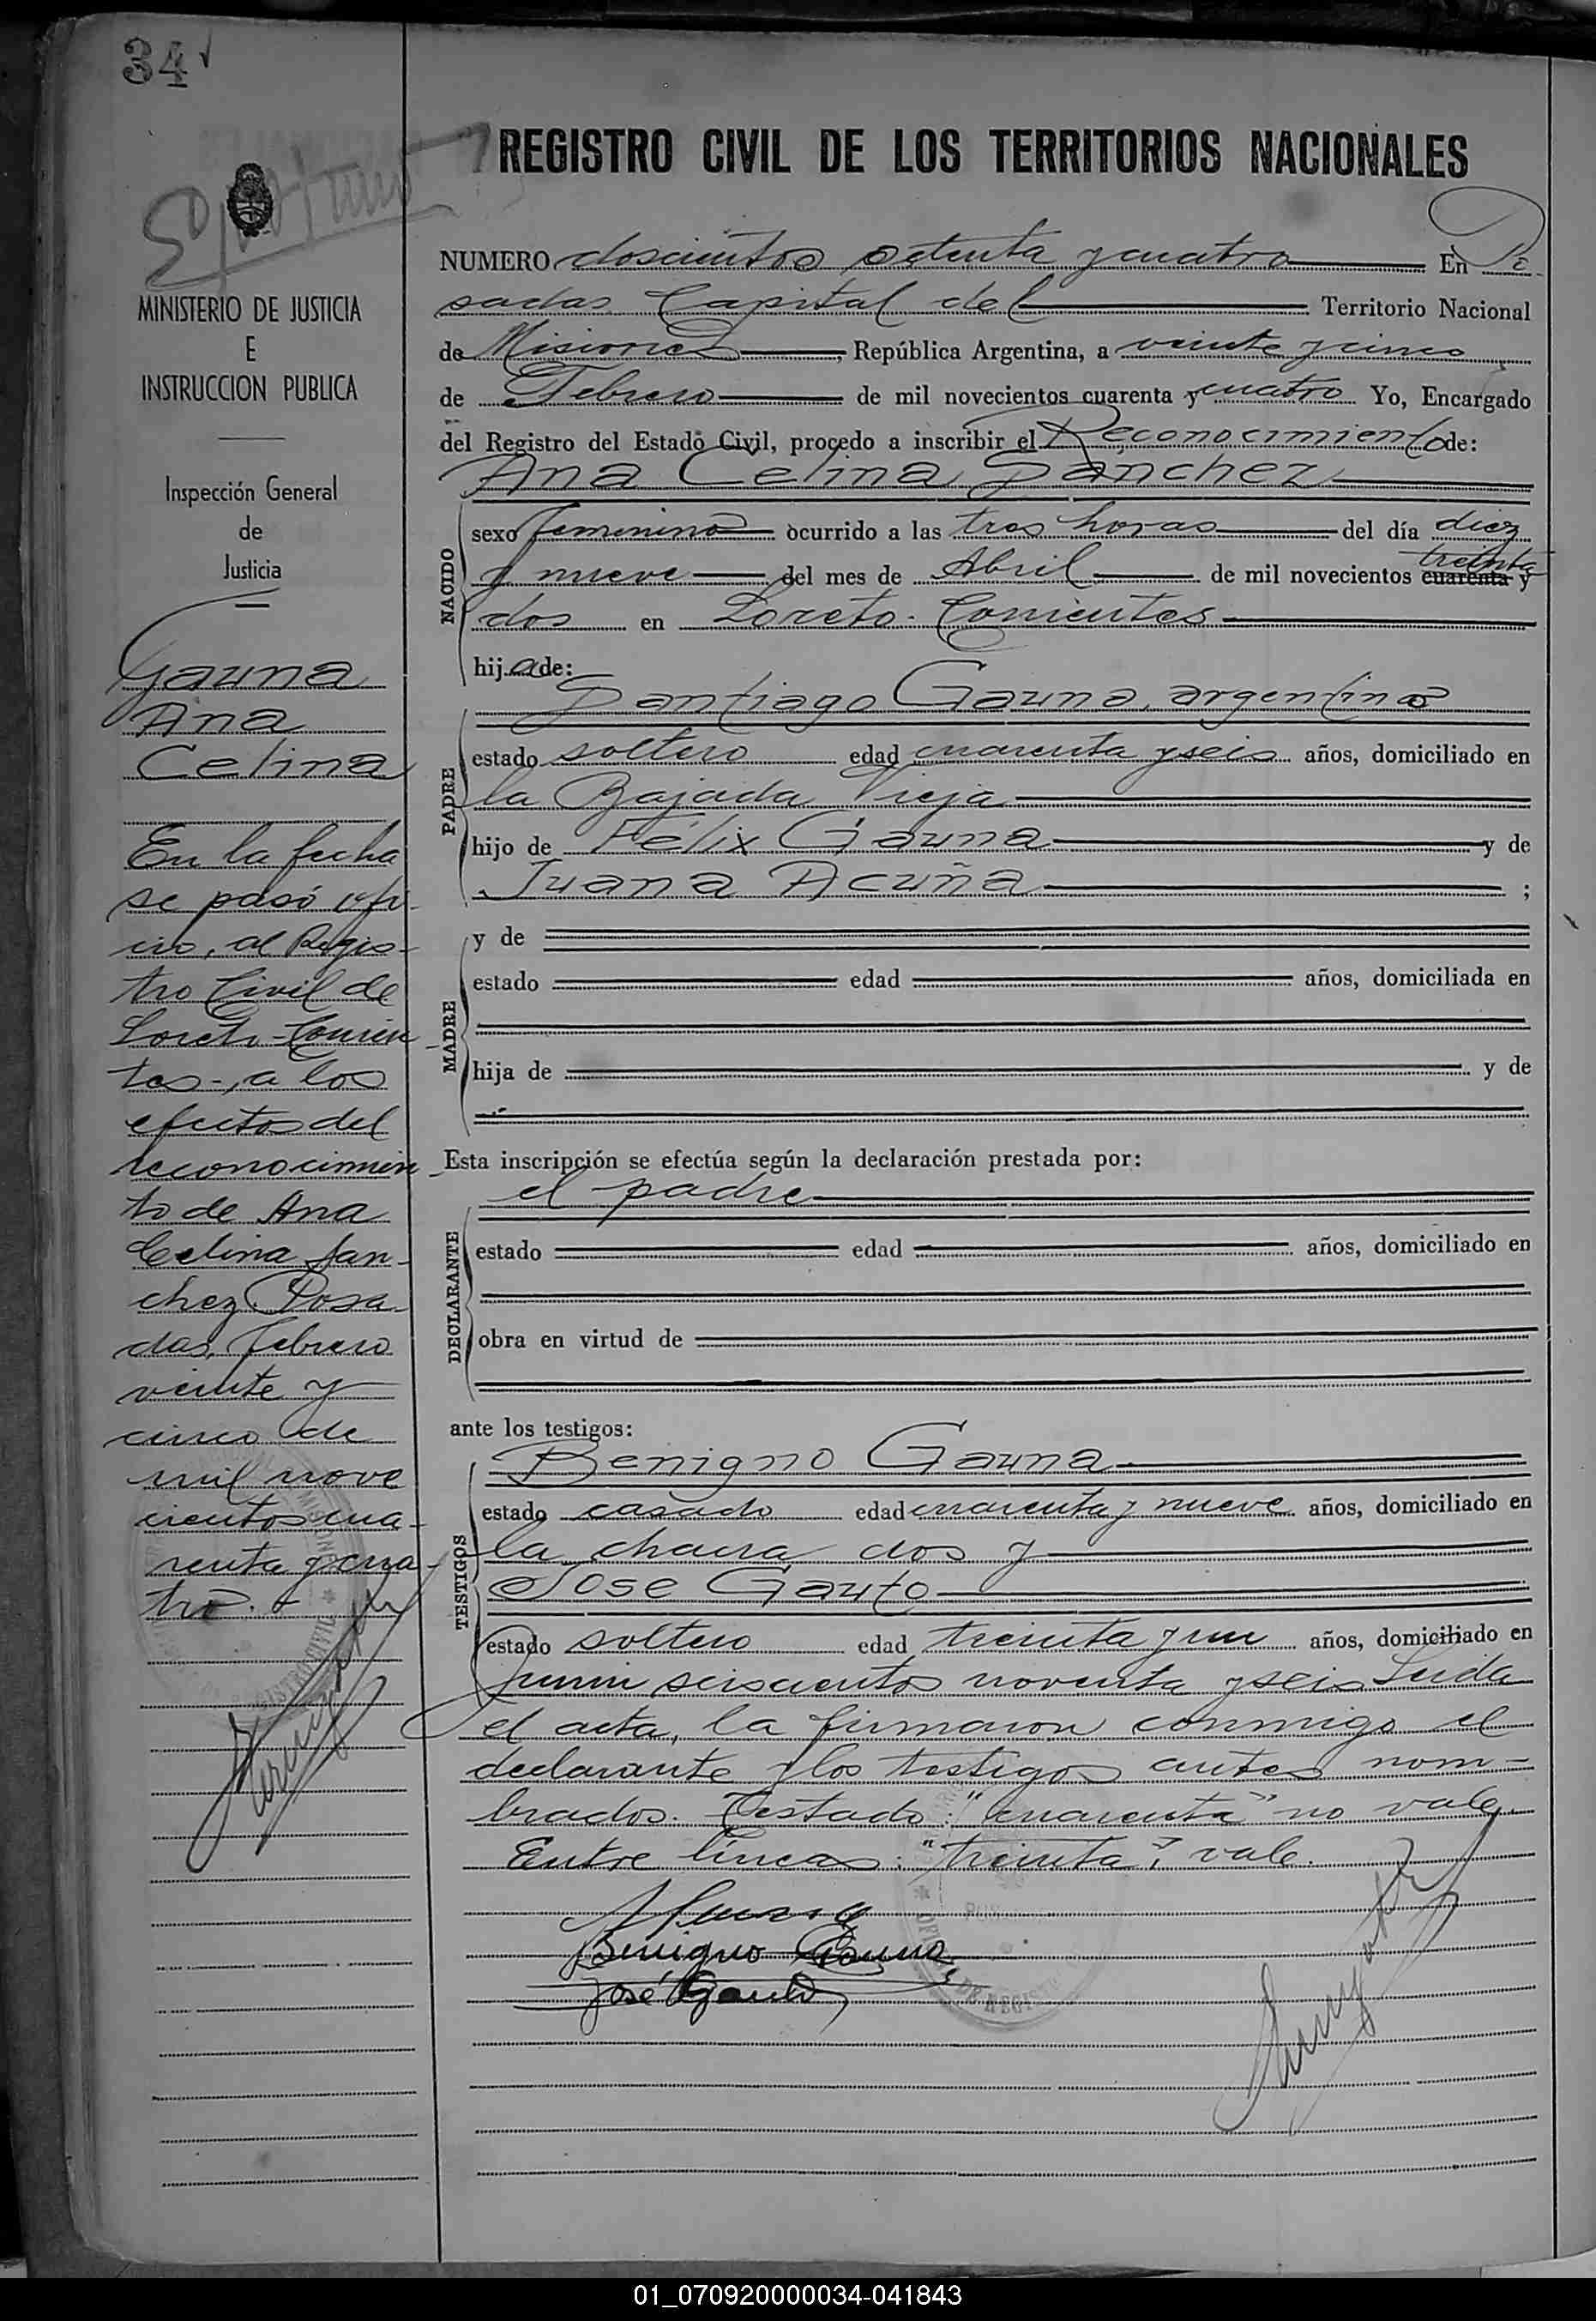 34
REGISTRO CIVIL DE LOS TERRITORIOS NACIONALES
MINISTERIO DE JUSTICIA
E
INSTRUCCION PUBLICA
Inspección General
de
Justicia
Gauna
Ana
Celina
En la fecha
se pasó ofi-
cio, al Regis-
tro Civil de
Loreto-Corrien-
tes-, a los
efectos del
reconocimien-
to de Ana
Celina San-
chez. Posa-
das, Febrero
veinte y
cinco de
mil nove
cientos cua-
renta y cua-
tro.
NUMERO doscientos setenta y cuatro En Po-
sadas Capital del Territorio Nacional
de Misiones, República Argentina, a veinte y cinco
de Febrero de mil novecientos cuarenta y cuatro Yo, Encargado
del Registro del Estado Civil, procedo a inscribir el Reconocimiento de:
Ana Celina Sanchez
NACIDO
sexo femenino ocurrido a las tres horas del día diez
treinta
y nueve del mes de Abril de mil novecientos cuarenta y
dos en Loreto-Corrientes
hija de:
Santiago Gauna, argentino
PADRE
estado soltero edad cuarenta y seis años, domiciliado en
la Bajada Vieja
hijo de Félix Gauna y de
Juana Acuña ;
MADRE
y de
estado edad años, domiciliada en
hija de y de
Esta inscripción se efectúa según la declaración prestada por:
el padre
DECLARANTE
estado edad años, domiciliado en
obra en virtud de
ante los testigos:
TESTIGOS
Benigno Gauna
estado casado edad cuarenta y nueve años, domiciliado en
la chacra dos y
José Gauto
estado soltero edad treinta y un años, domiciliado en
Junin seiscientos noventa y seis Leida
el acta, la firmaron conmigo el
declarante y los testigos antes nom-
brados. Testado: "cuarenta" no vale.
Entre líneas: "treinta", vale.
Benigno Gauna
José Gauto
01_070920000034-041843